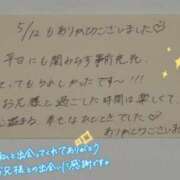 5/12もありがとうございました♡
平日にも関わらず事前予約
とってもうれしかったです〜!!!
お兄様と過ごした時間は楽しくて
心温まる、幸せなひとときでした
ありがとうございま
私と出会ってくれてありがとう
お兄様との出会いに感謝です。